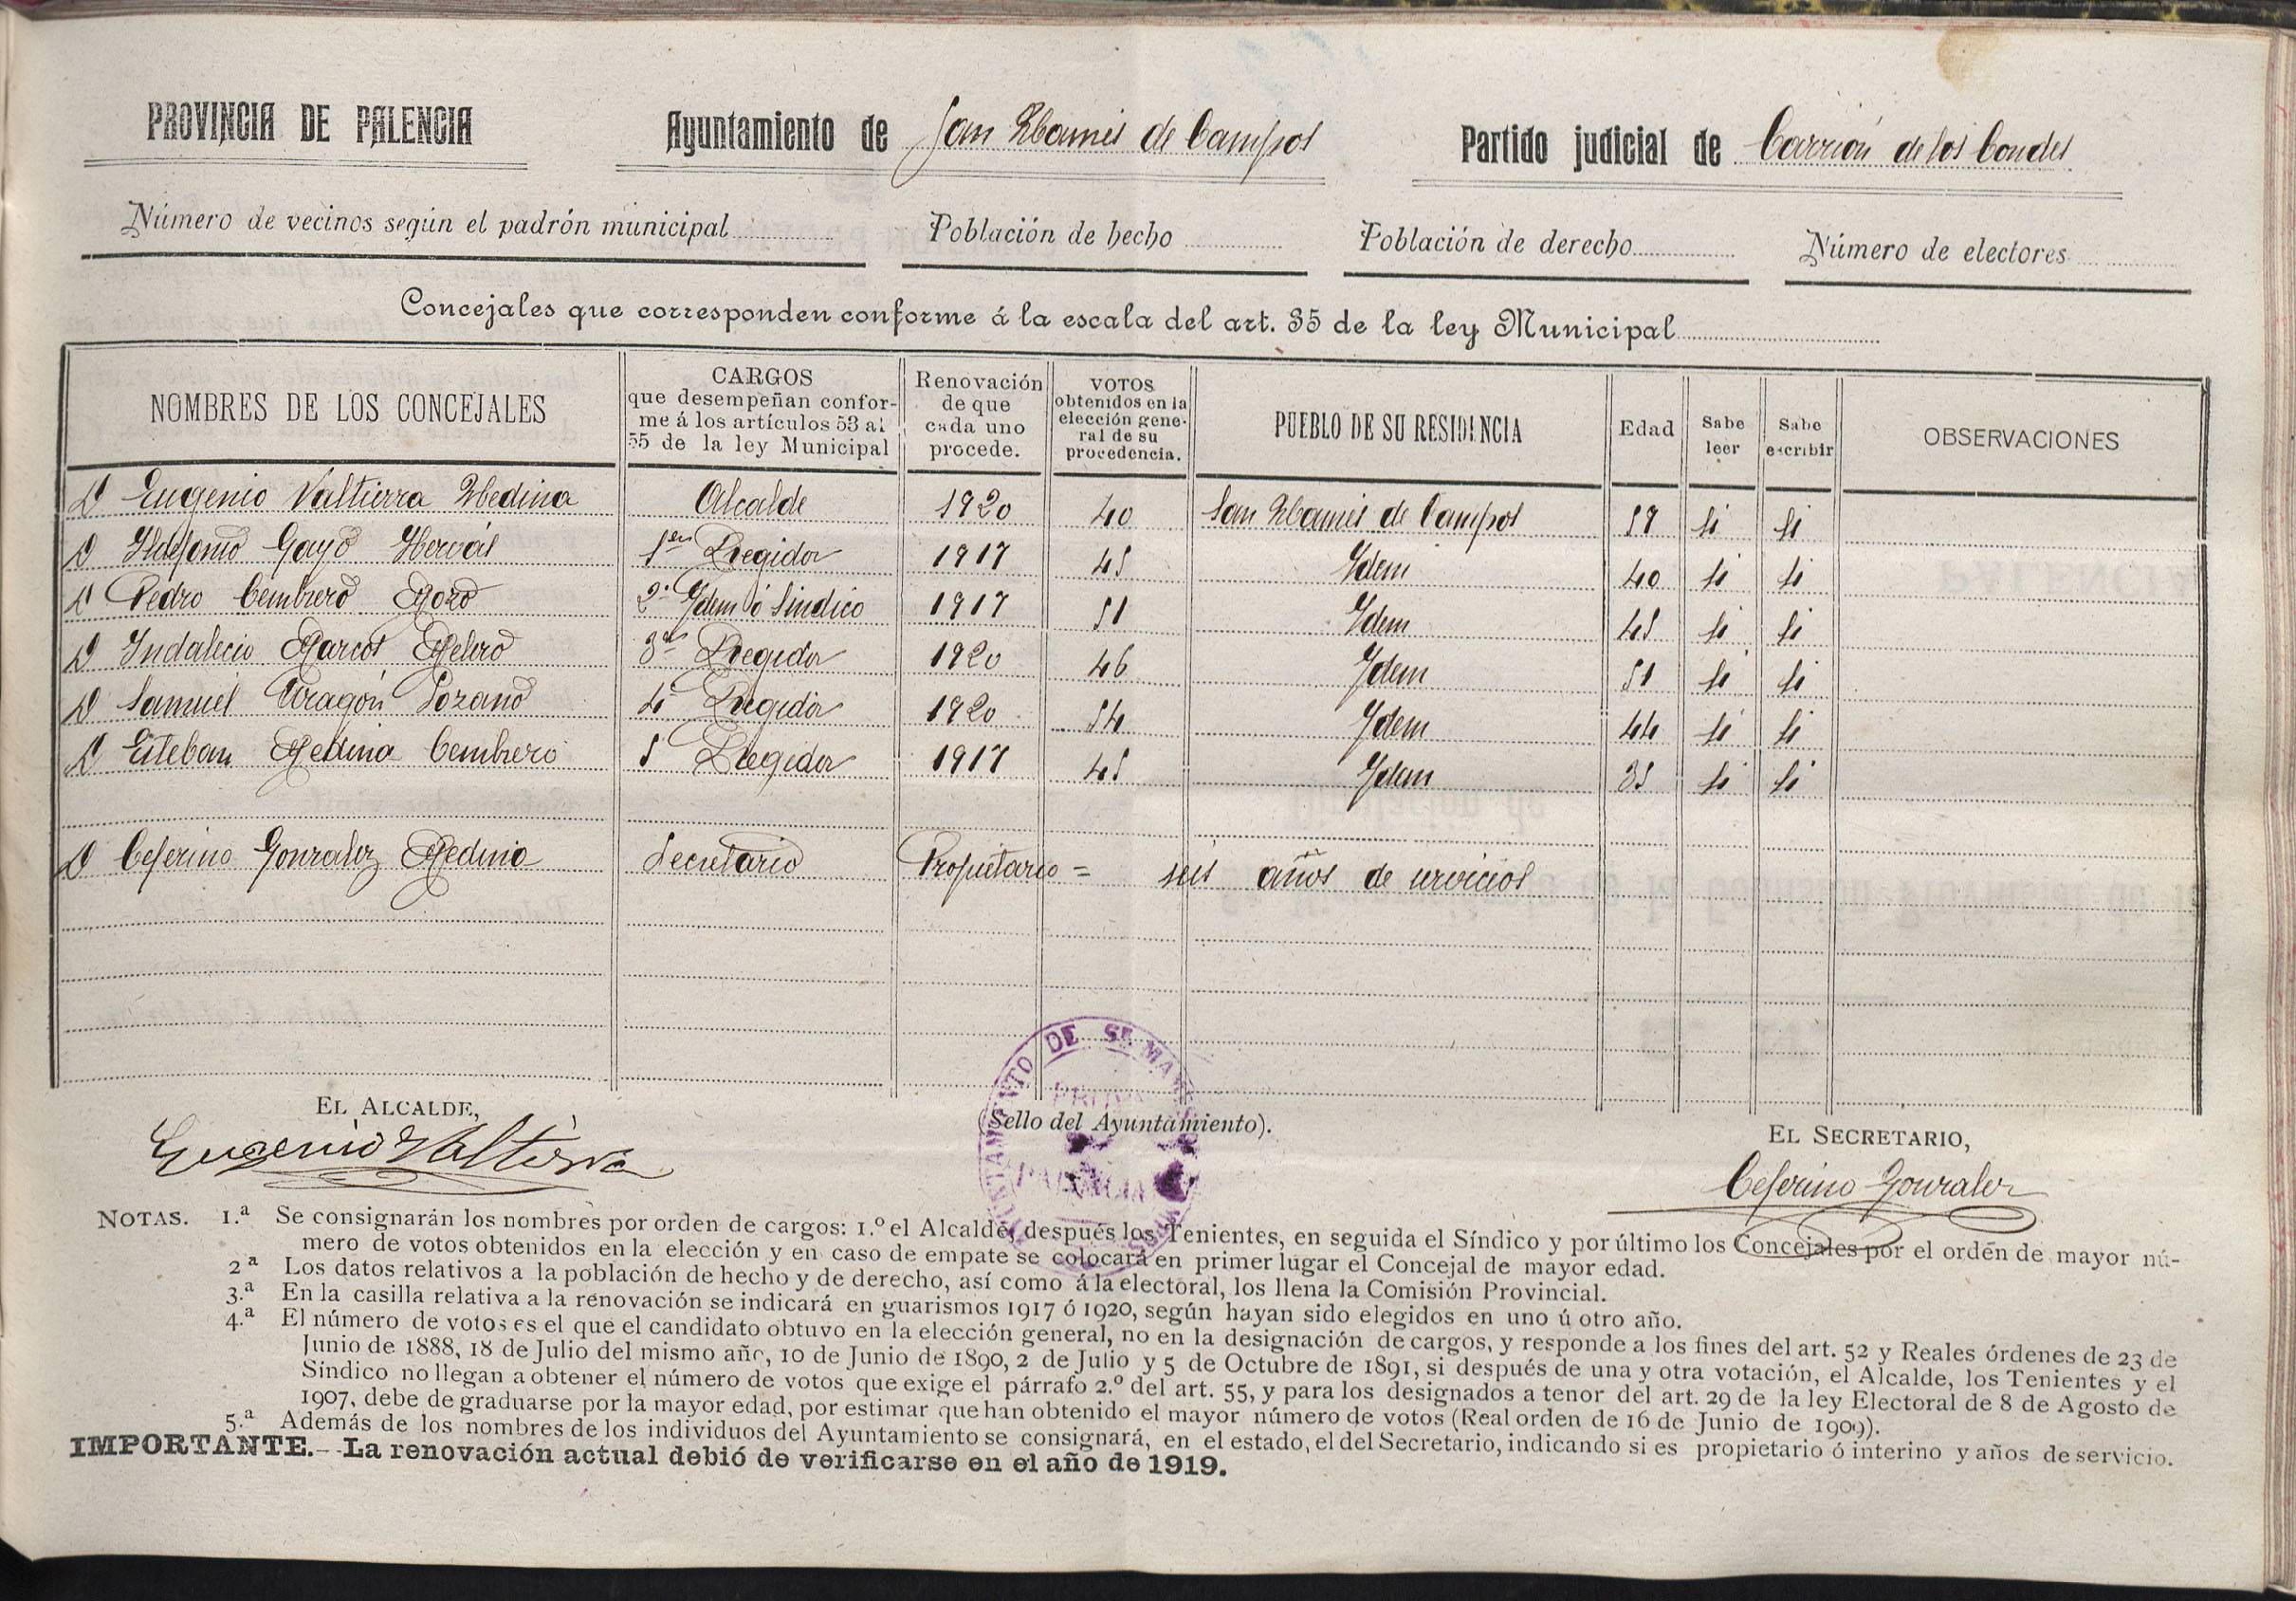 PROVINCIA DE PALENCIA Ayuntamiento de San Mamés de Campos Partido judicial de Carrión de los Condes
Número de vecinos según el padrón municipal Población de hecho Población de derecho Número de electores
Concejales que corresponden conforme á la escala del art. 35 de la ley Municipal
NOMBRES DE LOS CONCEJALES CARGOS que desempeñan confor-me á los artículos 53 al 55 de la ley Municipal Renovación de que cada uno procede. VOTOS obtenidos en la elección gene-ral de su procedencia. PUEBLO DE SU RESIDENCIA Edad Sabe leer Sabe escribir OBSERVACIONES
D Eugenio Valtierra Medina Alcalde 1920 40 San Mamés de Campos 59 si si
D Ildefonso Gayo Hervás 1er Regidor 1917 45 Idem 40 si si
D Pedro Cembrero Moro 2º Idem ó Sindico 1917 51 Idem 45 si si
D Indalecio Marcos Melero 3er Regidor 1920 46 Idem 51 si si
D Samuel Aragón Lozano 4º Regidor 1920 54 Idem 44 si si
D Esteban Medina Cembrero 5 Regidor 1917 45 Idem 35 si si
D Ceferino Gonzalez Medina Secretario Propietario = seis años de servicios
EL ALCALDE,
Eugenio Valtierra
(Sello del Ayuntamiento).
EL SECRETARIO,
Ceferino Gonzalez
NOTAS. 1.ª Se consignarán los nombres por orden de cargos: 1.º el Alcalde, después los Tenientes, en seguida el Síndico y por último los Concejales por el orden de mayor nú-
mero de votos obtenidos en la elección y en caso de empate se colocará en primer lugar el Concejal de mayor edad.
2ª Los datos relativos a la población de hecho y de derecho, así como á la electoral, los llena la Comisión Provincial.
3.ª En la casilla relativa a la renovación se indicará en guarismos 1917 ó 1920, según hayan sido elegidos en uno ú otro año.
4.ª El número de votos es el que el candidato obtuvo en la elección general, no en la designación de cargos, y responde a los fines del art. 52 y Reales órdenes de 23 de
Junio de 1888, 18 de Julio del mismo año, 10 de Junio de 1890, 2 de Julio y 5 de Octubre de 1891, si después de una y otra votación, el Alcalde, los Tenientes y el
Síndico no llegan a obtener el número de votos que exige el párrafo 2.º del art. 55, y para los designados a tenor del art. 29 de la ley Electoral de 8 de Agosto de
1907, debe de graduarse por la mayor edad, por estimar que han obtenido el mayor número de votos (Real orden de 16 de Junio de 1909).
5.ª Además de los nombres de los individuos del Ayuntamiento se consignará, en el estado, el del Secretario, indicando si es propietario ó interino y años de servicio.
IMPORTANTE.--La renovación actual debió de verificarse en el año de 1919.